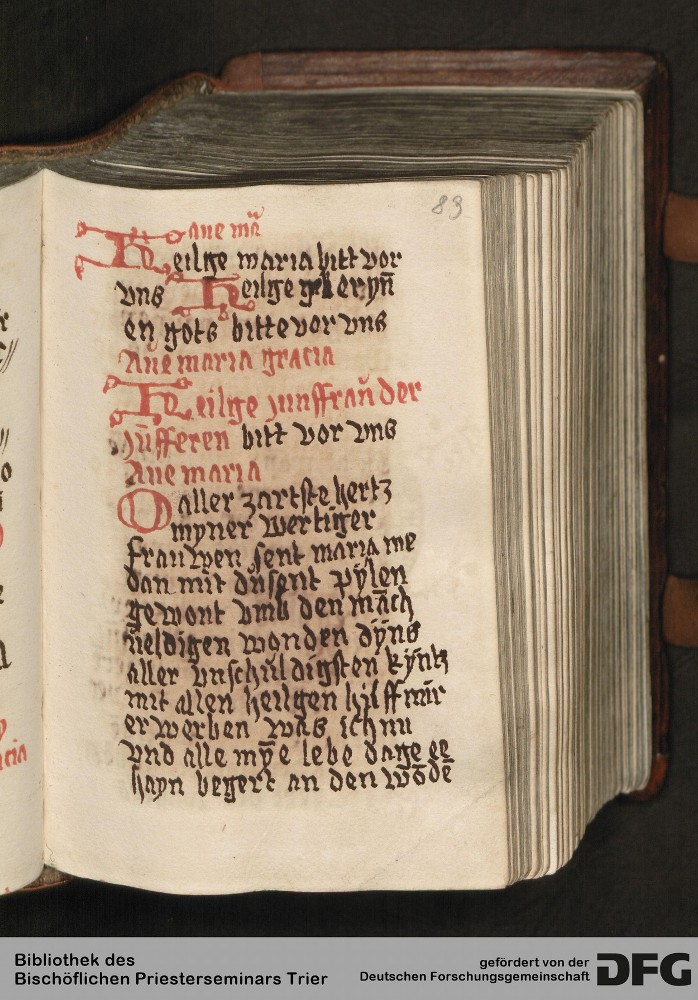 83
aue mã
Heilge maria bitt vor
vns Heilge geberyñ
en gots bitte vor vns
Aue maria gracia
Heilge junffrau der
juffteren bitt vor vns
Aue maria
O aller zartste hertz
myner wertiger
frauwen sent maria me
dan mit dusent pÿlen
gewont vmb den mãch
ueldigen wonden dÿns
aller vnschuldigsten kÿntz
mit allen heilgen hilff mir
erwerben was ich nu
vnd alle mỹe lebe dage ee
hayn begert an den wõdẽ
Bibliothek des
Bischöflichen Priesterseminars Trier
gefördert von der
Deutschen Forschungsgemeinschaft DFG